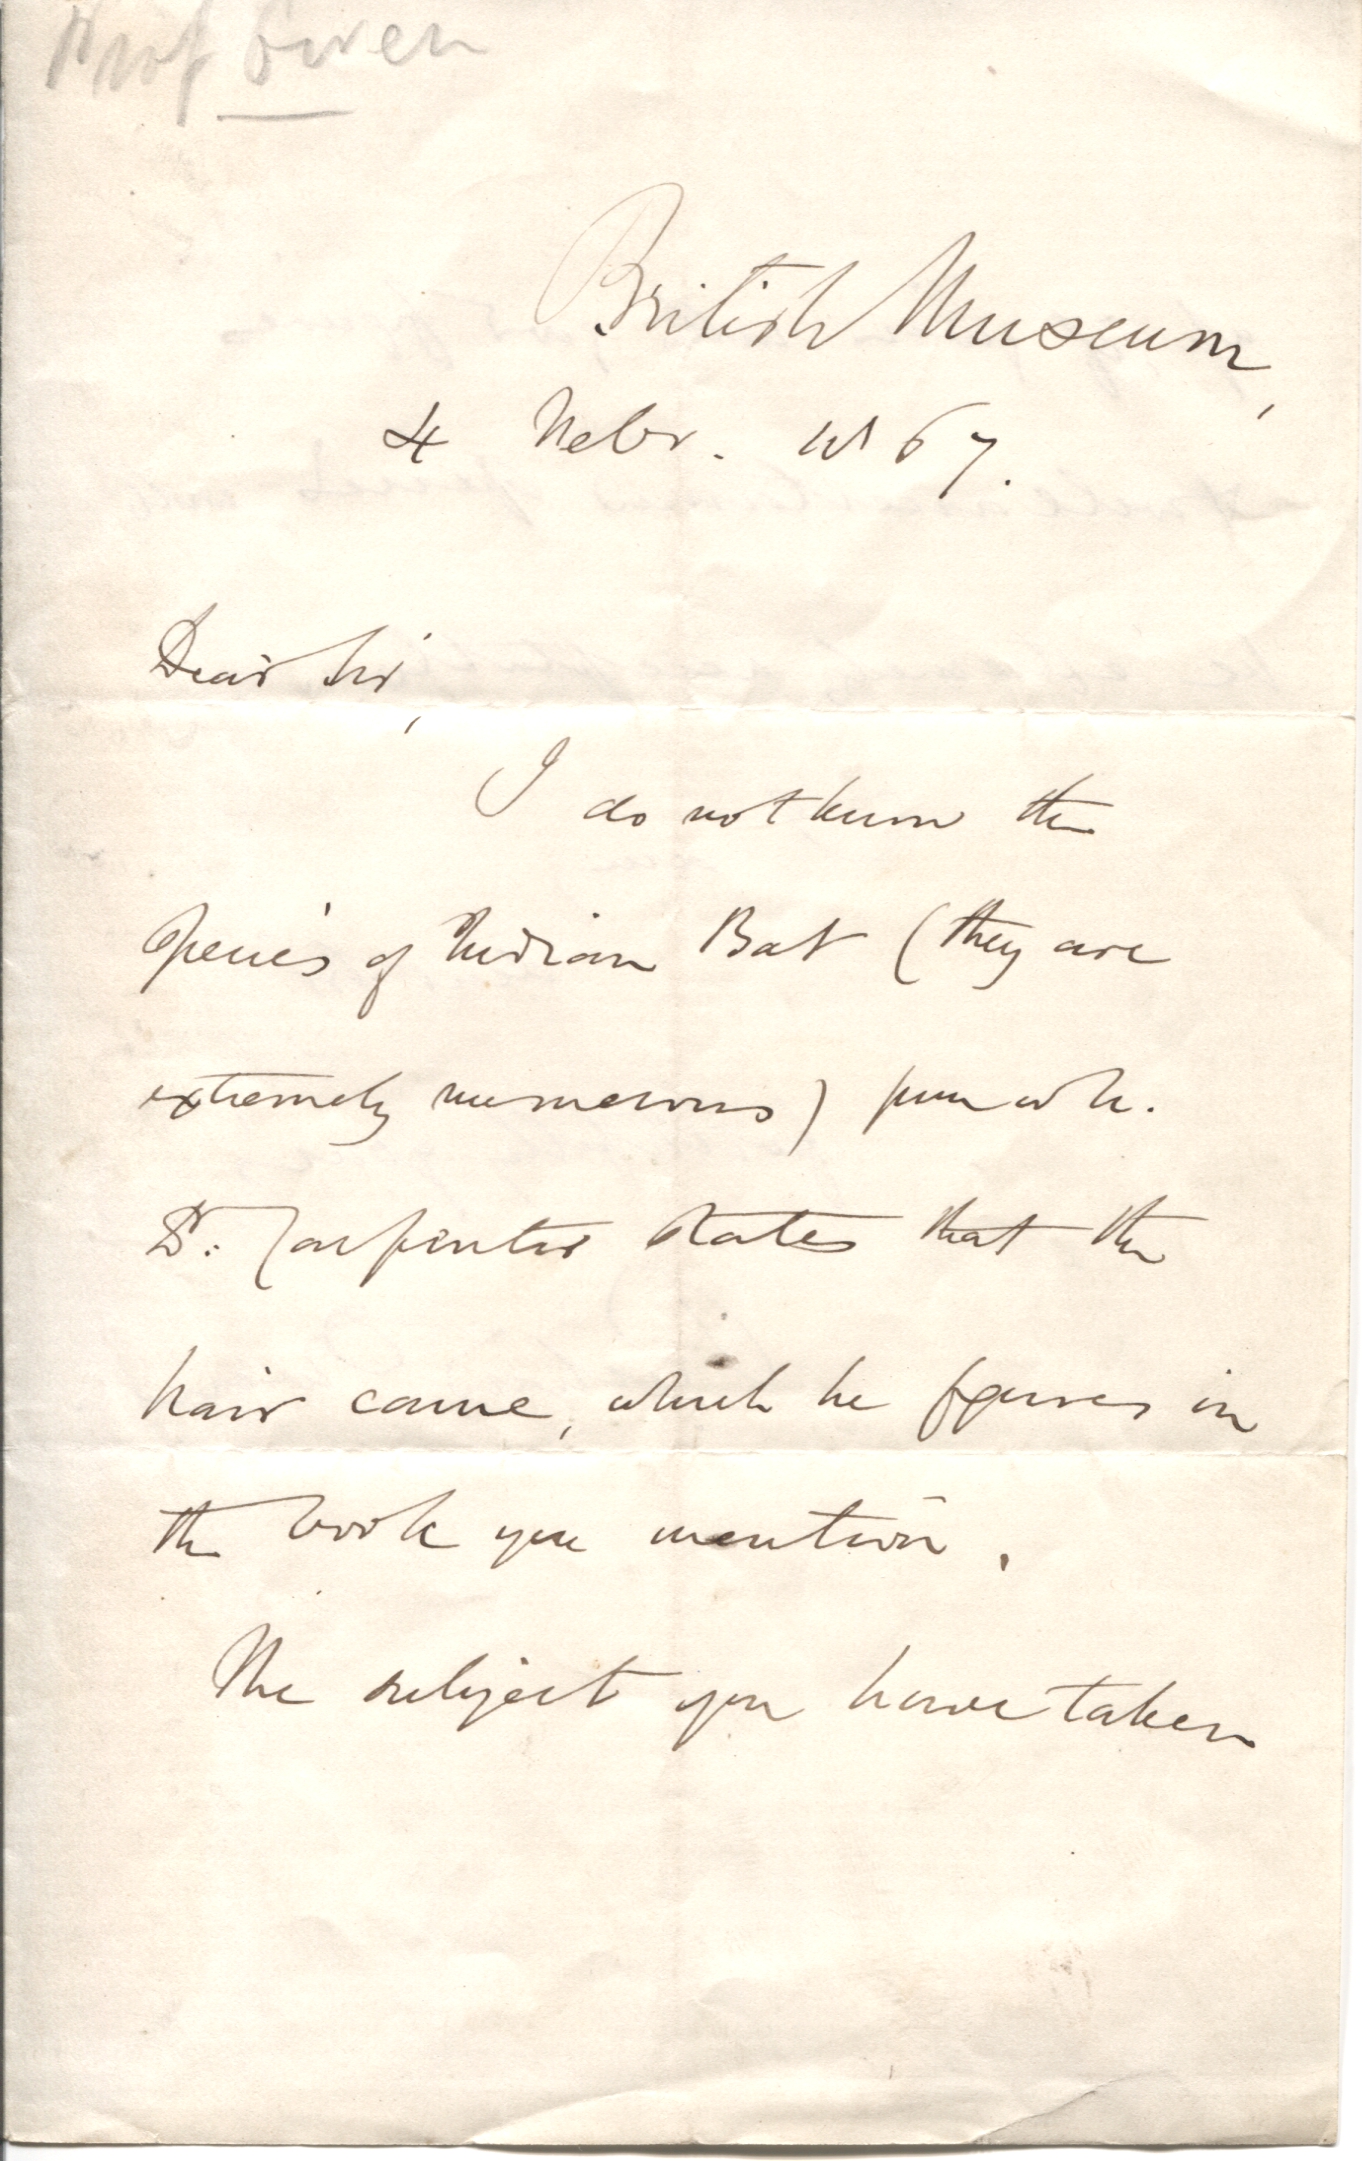 Prof Owen
British Museum,
4 Febr. 1867.
Dear Sir,
I do not know the
Species of Indian Bat (they are
extremely numerous) from wh.
Dr. Carpenter states that the
hair came, which he figures in
the book you mention.
The subject you have taken